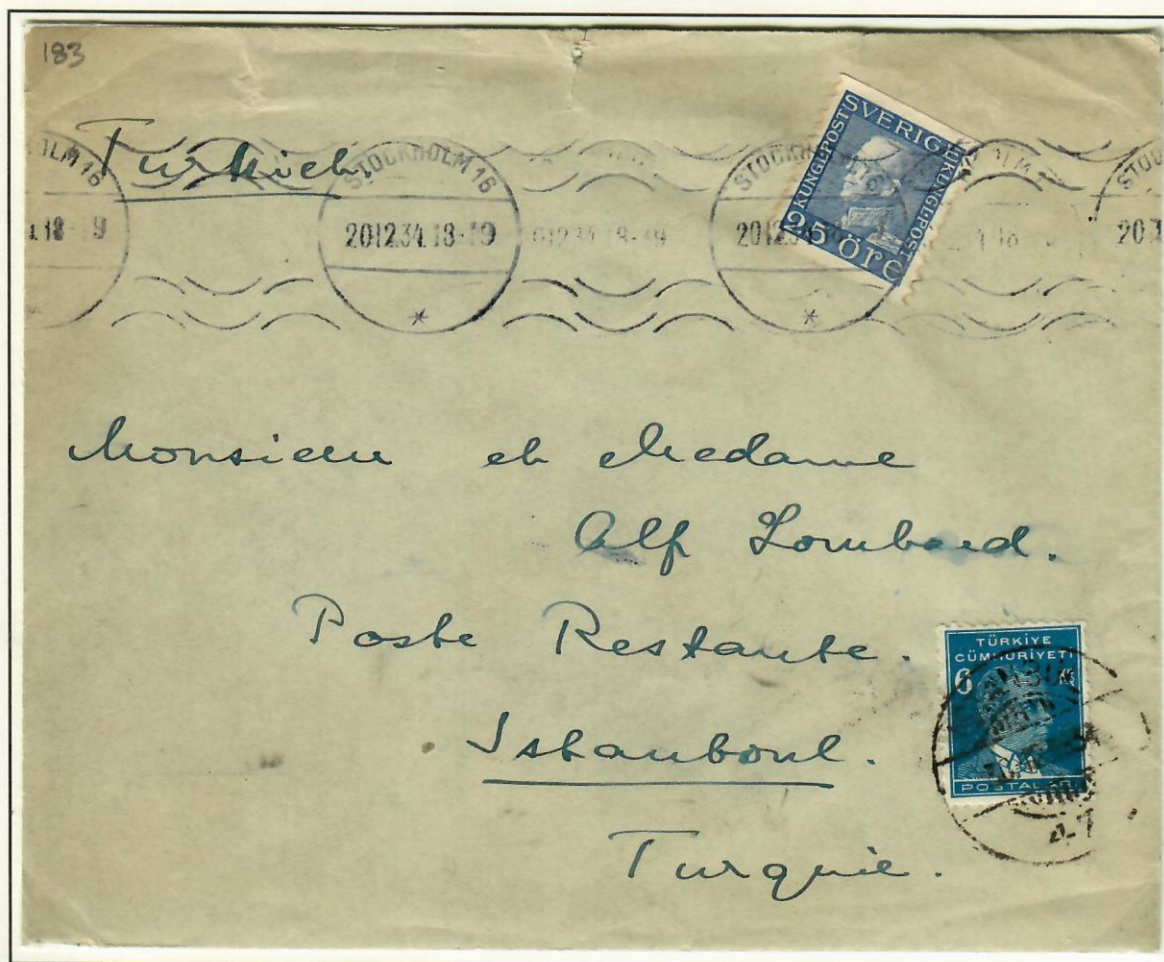 183
Turkiet.
HOLM 16
STOCKHOLM 16
STOCKH
STOC
4.18-19
2012.34.18-19
2012.34.18-19
2012.34
20.1
SVERIGE
KUNGL·POST
KUNGL·POST
25 ÖRE
Monsieur et Madame
Alf Lombard.
Poste Restante.
Istanboul.
Turquie.
TÜRKİYE
CÜMHURİYETİ
6
POSTALARI
4-7